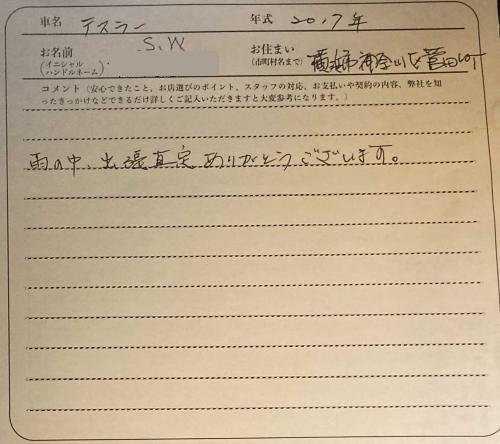 車名 テスラー 年式 2017年
お名前 S.W お住まい 横浜市神奈川区菅田町
(イニシャル ハンドルネーム) (市町村名まで)
コメント（安心できたこと、お店選びのポイント、スタッフの対応、お支払いや契約の内容、弊社を知
ったきっかけなどできるだけ詳しくご記入いただきますと大変参考になります。）
雨の中、出張真定ありがとうございます。